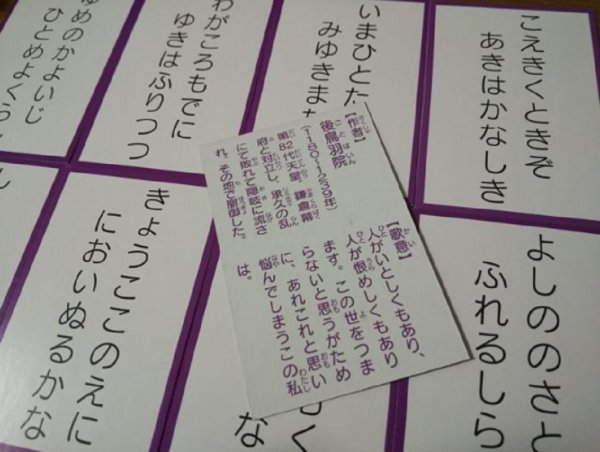 こえきくときぞ
あきはかなしき
いまひとた
みゆきま
わがころもでに
ゆきはふりつつ
ゆめのかよいじ
ひとめよくら
【作者】
後鳥羽院
(1180〜1239年)
第82代天皇。鎌倉幕
府と対立し、承久の乱
にて敗れて隠岐に流さ
れ、その地で崩御した。
【歌意】
人がいとしくもあり、
人が恨めしくもあり
ます。この世をつま
らないと思うがため
に、あれこれと思い
悩んでしまうこの私
は。
よしののさと
ふれるしら
きょうここのえに
においぬるかな